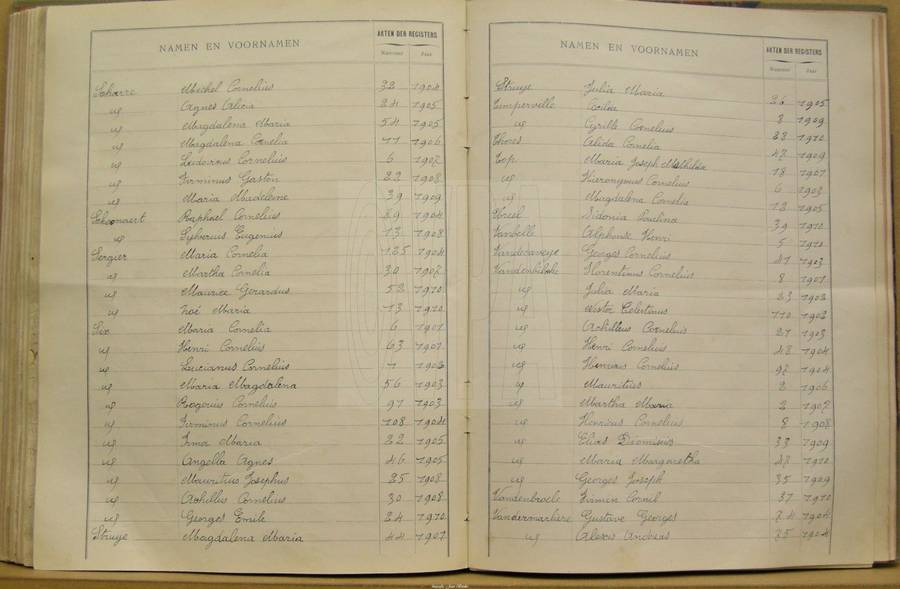 NAMEN EN VOORNAMEN AKTEN DER REGISTERS
Nummer Jaar
Scharre Michel Cornelius 32 1904
id Agnes Alicia 24 1905
id Magdalena Maria 54 1905
id Magdalena Cornelia 71 1906
id Ludovicus Cornelius 6 1907
id Firminus Gaston 22 1908
id Maria Madeleine 39 1909
Schoonaert Raphaël Cornelius 89 1904
id Sylverius Eugenius 13 1908
Sergier Maria Cornelia 125 1904
id Martha Cornelia 30 1907
id Maurice Gerardus 52 1910
id Zoë Maria 13 1910
Six Maria Cornelia 6 1901
id Henri Cornelius 63 1901
id Lucianus Cornelius 1 1903
id Maria Magdalena 56 1903
id Rogerius Cornelius 97 1903
id Firminus Cornelius 108 1904
id Irma Maria 22 1905
id Angella Agnes 46 1905
id Mauritius Josephus 25 1908
id Achilles Cornelius 30 1908
id Georges Emile 24 1910
Struye Magdalena Maria 44 1907
NAMEN EN VOORNAMEN AKTEN DER REGISTERS
Nummer Jaar
Struye Julia Maria 26 1905
Temperville Cecilia 8 1909
id Cyrille Cornelius 28 1910
Thores Alida Cornelia 47 1909
Top Maria Joseph Mathilda 18 1901
id Hieronymus Cornelius 6 1903
id Magdalena Cornelia 12 1905
Ureel Sidonia Paulina 39 1910
Vanbelle Alphonse Henri 5 1910
Vandecaveye Georges Cornelius 41 1903
Vandenbilcke Florentinus Cornelius 8 1901
id Julia Maria 23 1902
id Nestor Celestinus 110 1902
id Achilleus Cornelius 21 1903
id Henri Cornelius 48 1904
id Henricus Cornelius 92 1904
id Mauritius 2 1906
id Martha Maria 2 1907
id Henricus Cornelius 8 1908
id Elias Dionisius 33 1909
id Maria Margaretha 48 1910
id Georges Joseph 35 1909
Vandenbroele Firmin Cornil 37 1910
Vandermarliere Gustave Georges 74 1904
id Alexis Andreas 75 1904